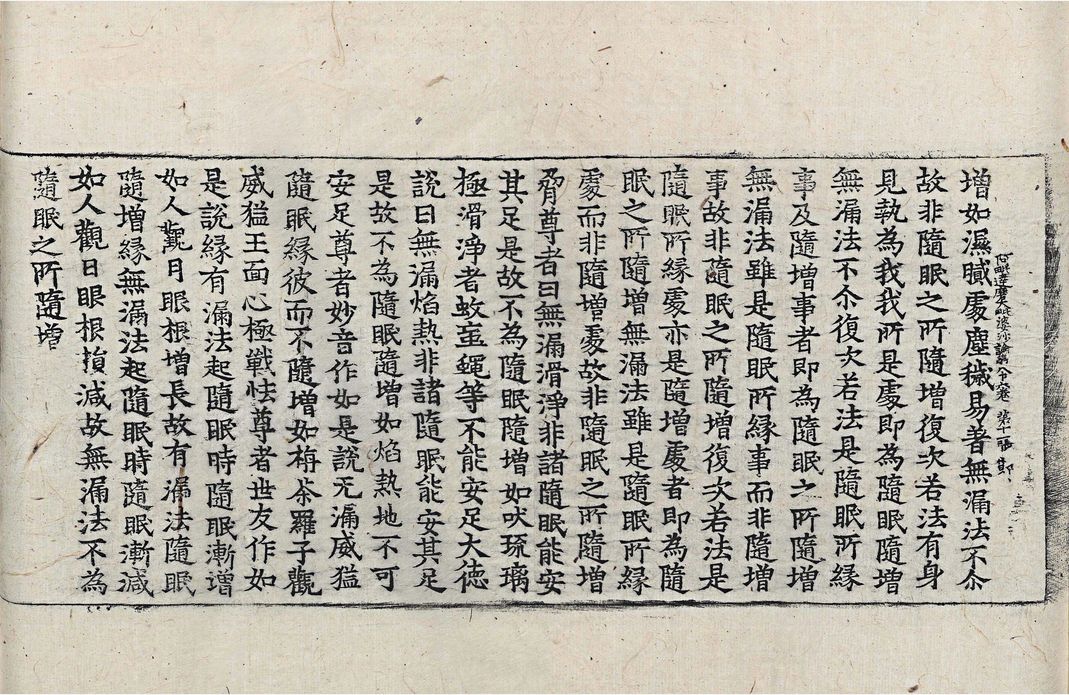 阿毗達磨大毗婆沙論第八十六卷 第十二張 鄭
增如濕膩處塵穢易著無漏法不尒
故非隨眠之所隨增復次若法有身
見執為我我所是處即為隨眠隨增
無漏法不尒復次若法是隨眠所緣
事及隨增事者即為隨眠之所隨增
無漏法雖是隨眠所緣事而非隨增
事故非隨眠之所隨增復次若法是
隨眠所緣處亦是隨增處者即為隨
眠之所隨增無漏法雖是隨眠所緣
處而非隨增處故非隨眠之所隨增
脅尊者曰無漏滑淨非諸隨眠能安
其足是故不為隨眠隨增如吠琉璃
極滑淨者蚊蝱蠅等不能安足大德
說曰無漏焰熱非諸隨眠能安其足
是故不為隨眠隨增如焰熱地不可
安足尊者妙音作如是說无漏威猛
隨眠緣彼而不隨增如旃茶羅子觀
威猛王面心極戰怯尊者世友作如
是說緣有漏法起隨眠時隨眠漸增
如人觀月眼根增長故有漏法隨眠
隨增緣無漏法起隨眠時隨眠漸減
如人觀日眼根損減故無漏法不為
隨眠之所隨增